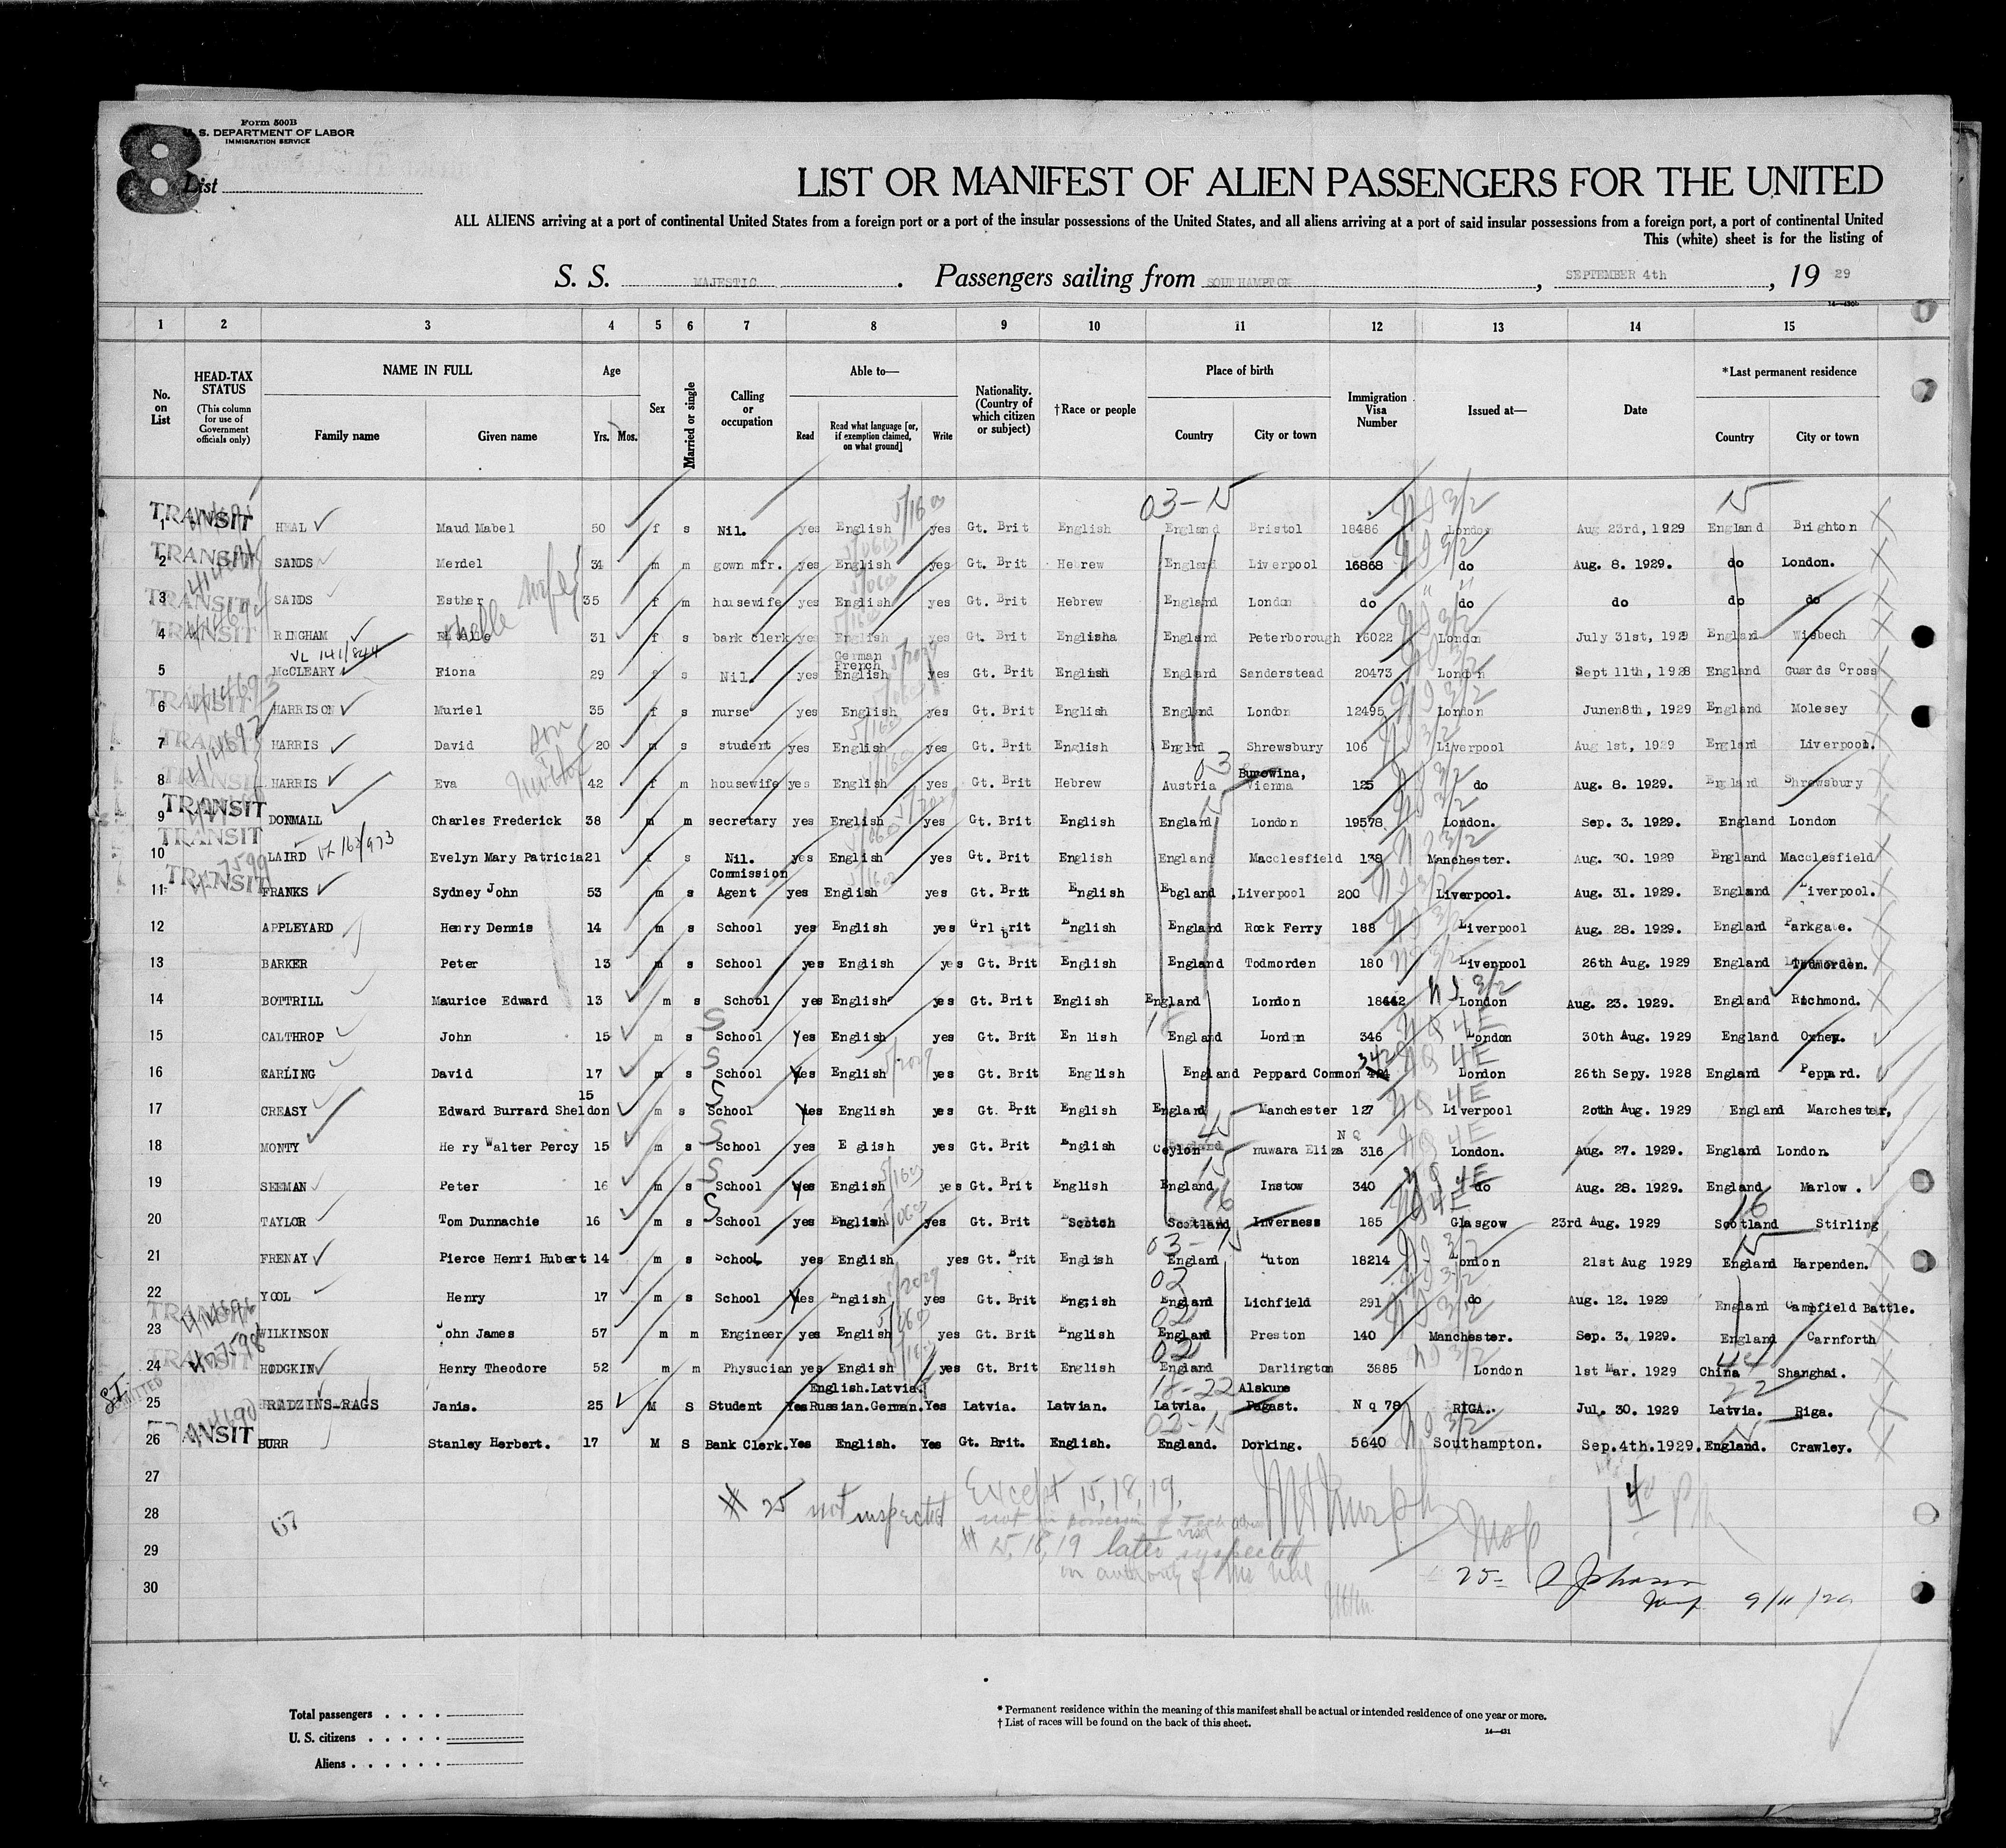 8
Form 500B
U. S. DEPARTMENT OF LABOR
IMMIGRATION SERVICE
List
LIST OR MANIFEST OF ALIEN PASSENGERS FOR THE UNITED
ALL ALIENS arriving at a port of continental United States from a foreign port or a port of the insular possessions of the United States, and all aliens arriving at a port of said insular possessions from a foreign port, a port of continental United
This (white) sheet is for the listing of
S. S. MAJESTIC . Passengers sailing from SOUTHAMPTON , SEPTEMBER 4th , 19 29
1 2 3 4 5 6 7 8 9 10 11 12 13 14 15
No. on List
HEAD-TAX STATUS (This column for use of Government officials only)
NAME IN FULL Family name Given name
Age Yrs. Mos.
Sex
Married or single
Calling or occupation
Able to— Read Read what language [or, if exemption claimed, on what ground] Write
Nationality. (Country of which citizen or subject)
†Race or people
Place of birth Country City or town
Immigration Visa Number
Issued at—
Date
*Last permanent residence Country City or town
03-15 15
1 TRANSIT HEAL Maud Mabel 50 f s Nil. yes English yes Gt. Brit English England Bristol 18486 London Aug 23rd, 1929 England Brighton
2 TRANSIT SANDS Mendel 34 m m gown mfr. yes English yes Gt. Brit Hebrew England Liverpool 16868 do Aug. 8. 1929. do London.
3 TRANSIT SANDS Esther wife 35 f m housewife yes English yes Gt. Brit Hebrew England London do do do do do
4 TRANSIT RINGHAM 31 f s bank clerk yes English yes Gt. Brit Englisha England Peterborough 16022 London July 31st, 1929 England Wisbech
VL 141/844 German French
5 McCLEARY Fiona 29 f s Nil. yes English yes Gt. Brit English England Sanderstead 20473 London Sept 11th, 1928 England Guards Cross
6 TRANSIT HARRISON Muriel 35 f s nurse yes English yes Gt. Brit English England London 12495 London Junen8th, 1929 England Molesey
7 TRANSIT HARRIS David son 20 m s student yes English yes Gt. Brit English Englnd Shrewsbury 106 Liverpool Aug 1st, 1929 England Liverpool.
03 Bucowina,
8 TRANSIT HARRIS Eva mother 42 f m housewife yes English yes Gt. Brit Hebrew Austria Vienna 125 do Aug. 8. 1929. England Shrewsbury
9 TRANSIT DONMALL Charles Frederick 38 m m secretary yes English yes Gt. Brit English England London 19578 London. Sep. 3. 1929. England London
10 TRANSIT LAIRD VL 163/973 Evelyn Mary Patricia 21 f s Nil. yes English yes Gt. Brit English England Macclesfield 138 Manchester. Aug. 30. 1929 England Macclesfield
Commission
11 TRANSIT FRANKS Sydney John 53 m s Agent yes English yes Gt. Brit English Ebgland ,Liverpool 200 Liverpool. Aug. 31. 1929. England Liverpool.
12 APPLEYARD Henry Dennis 14 m s School yes English yes Grl brit English England Rock Ferry 188 Liverpool Aug. 28. 1929. England Parkgate.
13 BARKER Peter 13 m s School yes English yes Gt. Brit English England Todmorden 180 Liverpool 26th Aug. 1929 England Todmorden.
14 BOTTRILL Maurice Edward 13 m s School yes English yes Gt. Brit English England London 18442 London Aug. 23. 1929. England Richmond.
15 CALTHROP John 15 m s S School Yes English yes Gt. Brit En lish England London 346 London 30th Aug. 1929 England Oxhey.
342
16 EARLING David 17 m s S School Yes English yes Gt. Brit English England Peppard Common London 26th Sepy. 1928 England Peppard.
15
17 CREASY Edward Burrard Sheldon m s S School Yes English yes Gt. Brit English England Manchester 127 Liverpool 20th Aug. 1929 England Manchester,
45 N Q
18 MONTY He ry Walter Percy 15 m s S School yes E glish yes Gt. Brit English Ceylon nuwara Eliza 316 London. Aug. 27. 1929. England London.
19 SEEMAN Peter 16 m s S School yes English yes Gt. Brit English England Instow 340 do Aug. 28. 1929. England Marlow .
20 TAYLOR Tom Dunnachie 16 m s S School yes English yes Gt. Brit Scotch Scotland Inverness 185 Glasgow 23rd Aug. 1929 Scotland Stirling
21 FRENAY Pierce Henri Hubert 14 m s School yes English yes Gt. Brit English England Luton 18214 London 21st Aug 1929 England Harpenden.
22 YOOL Henry 17 m s School Yes English yes Gt. Brit English England Lichfield 291 do Aug. 12. 1929 England Campfield Battle.
23 TRANSIT WILKINSON John James 57 m m Engineer yes English yes Gt. Brit English England Preston 140 Manchester. Sep. 3. 1929. England Carnforth
24 TRANSIT HODGKIN Henry Theodore 52 m m Physucian yes English yes Gt. Brit English England Darlington 3885 London 1st Mar. 1929 China Shanghai.
English.Latvia. 18-22 Alskune 22
25 FRADZINS-RAGS Janis. 25 M S Student Yes Russian.German. Yes Latvia. Latvian. Latvia. Pagast. N q 78 RIGA.. Jul. 30. 1929 Latvia. Riga.
03-15
26 TRANSIT BURR Stanley Herbert. 17 M S Bank Clerk. Yes English. Yes Gt. Brit. English. England. Dorking. 5640 Southampton. Sep.4th.1929. England. Crawley.
27
28
29
30
# 25 not inspected
Except 15, 18, 19,
not in possession of
# 15, 18, 19 later inspected
on authority of
25= Johnson
9/11/29
Total passengers . . . .
U. S. citizens . . . . .
Aliens . . . . . .
* Permanent residence within the meaning of this manifest shall be actual or intended residence of one year or more.
† List of races will be found on the back of this sheet.
14—431